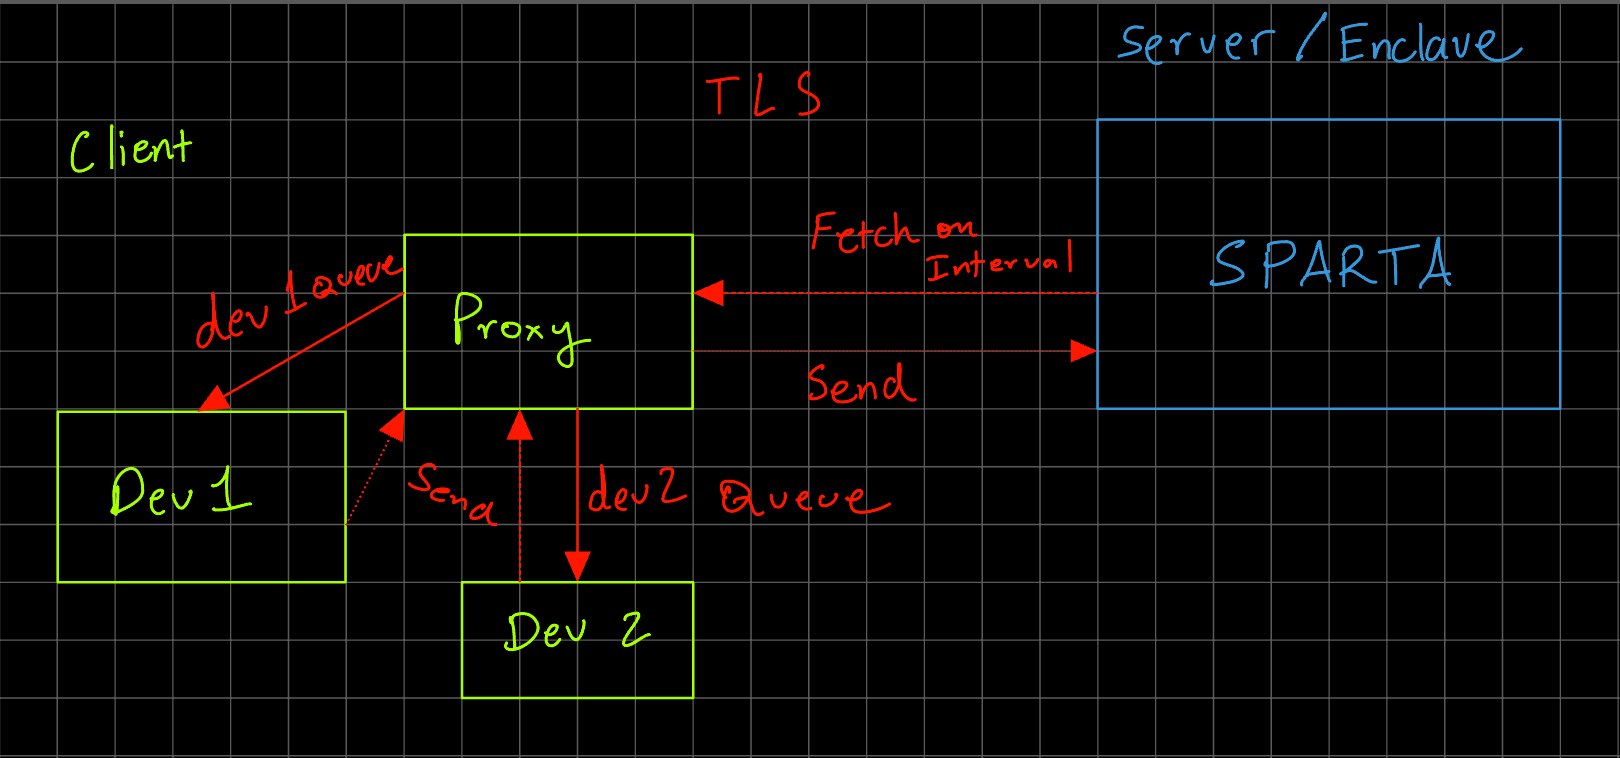 Server / Enclave
TLS
Client
Fetch on
Interval
SPARTA
dev 1 Queue
Proxy
Send
Dev 1
Send
dev2 Queue
Dev 2